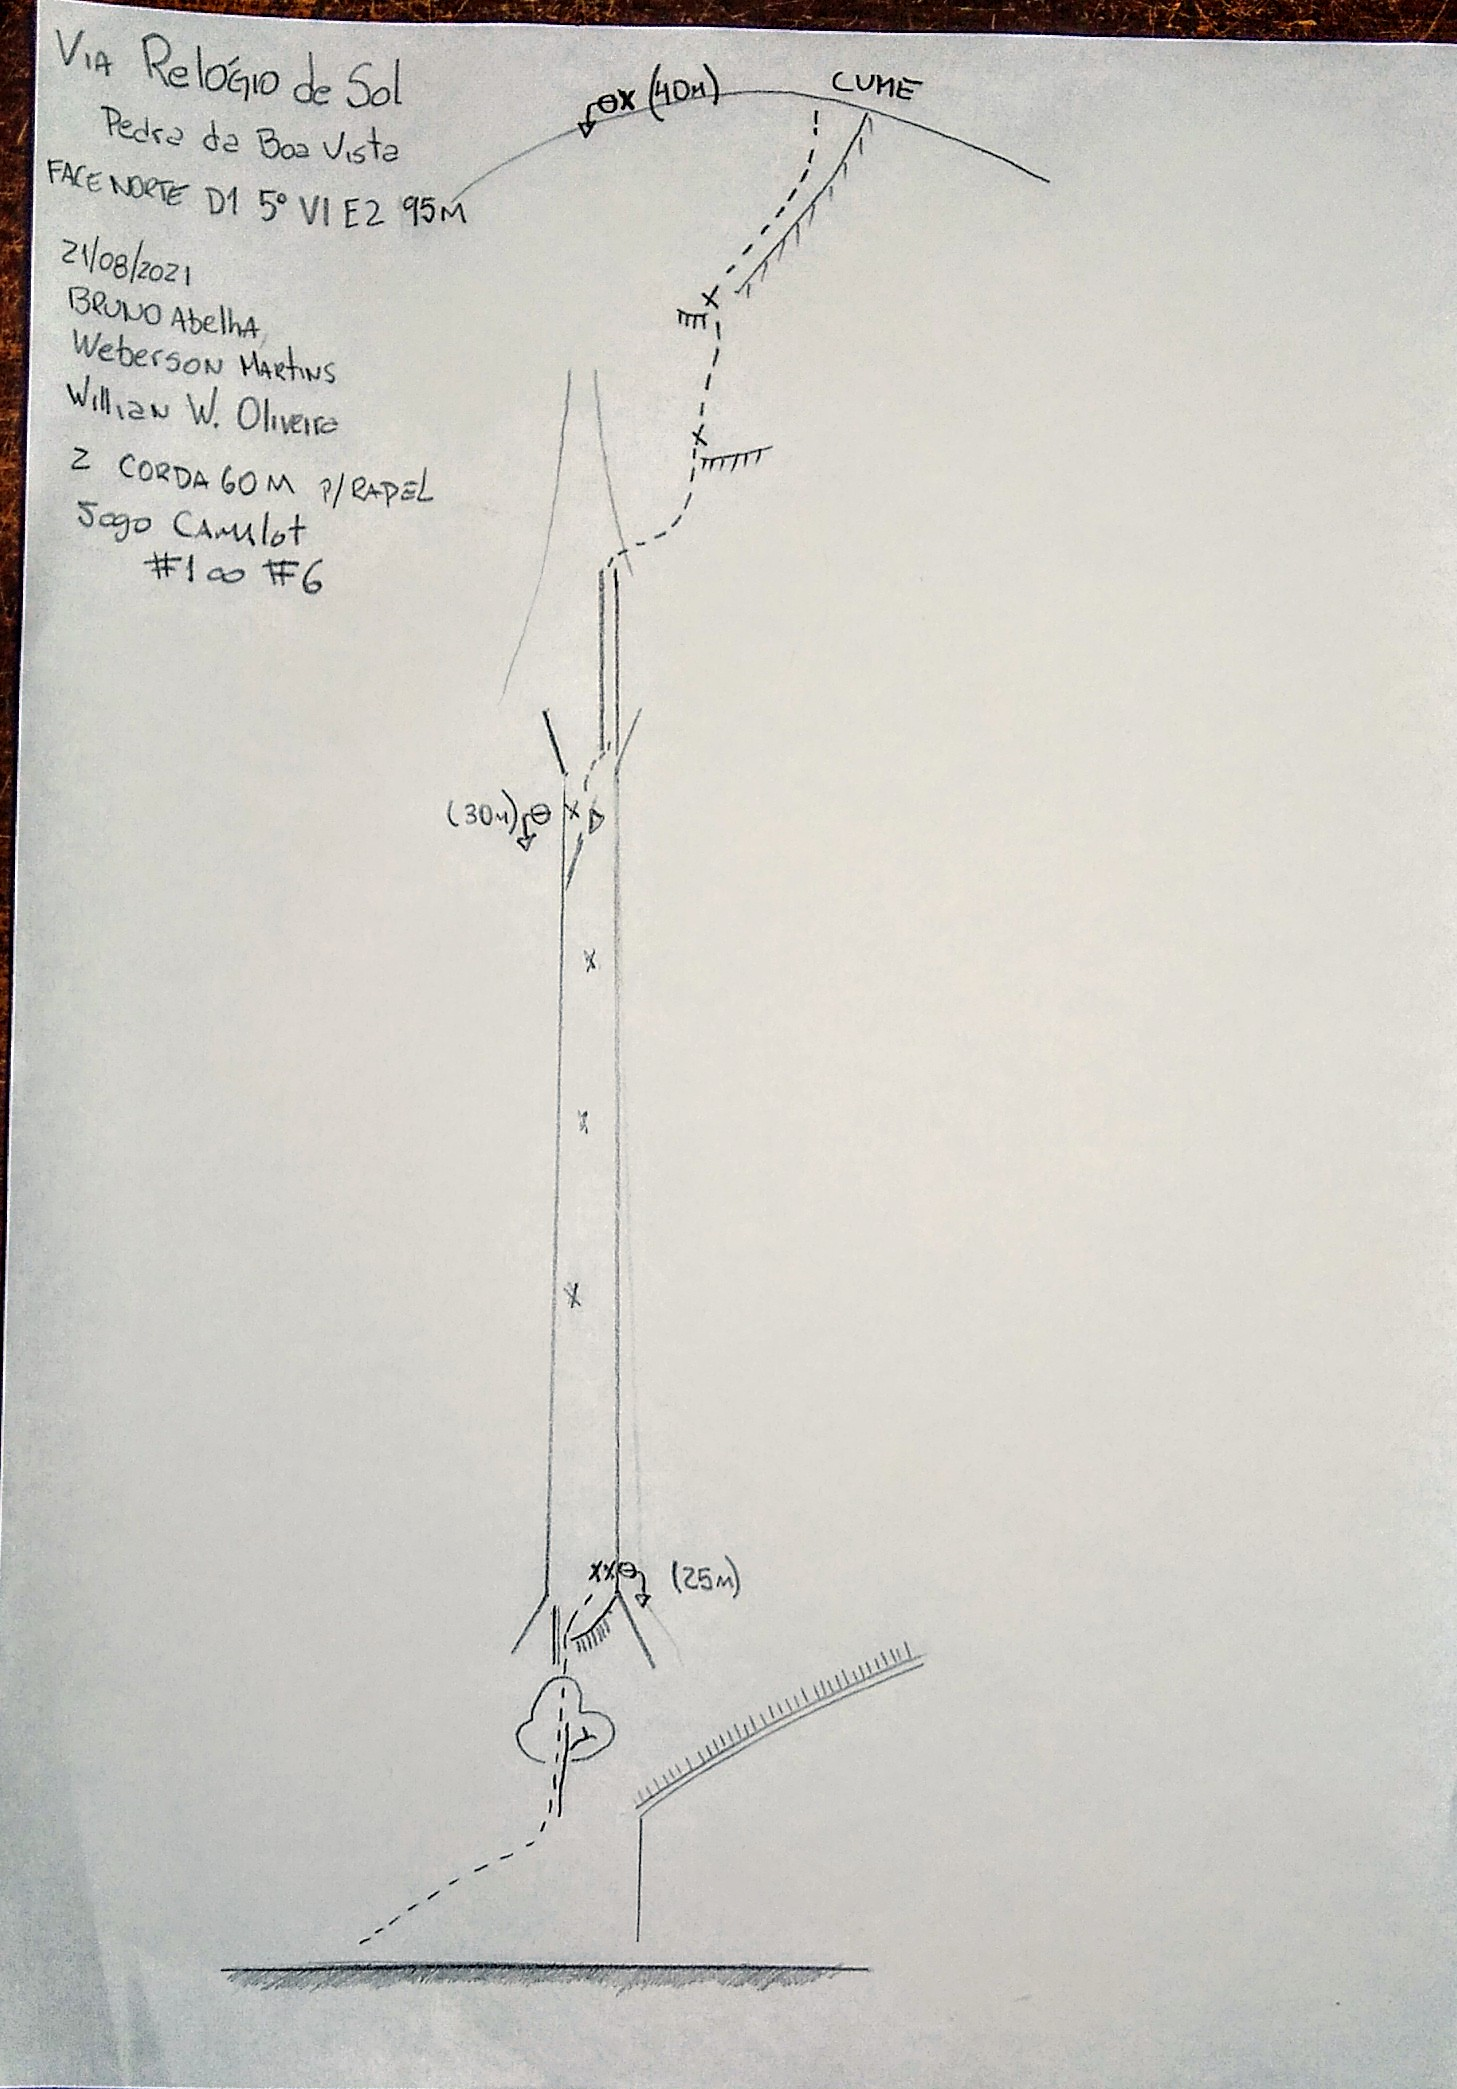 VIA RELÓGIO de Sol
Pedra da Boa Vista
FACE NORTE D1 5° VI E2 95M
21/08/2021
BRUNO AbelhA,
Weberson MARtiNS
Willian W. Oliveira
2 CORDA 60M P/RAPEL
Jogo CAMAlot
#1 ao #6
(40M)
CUME
(30M)
(25M)